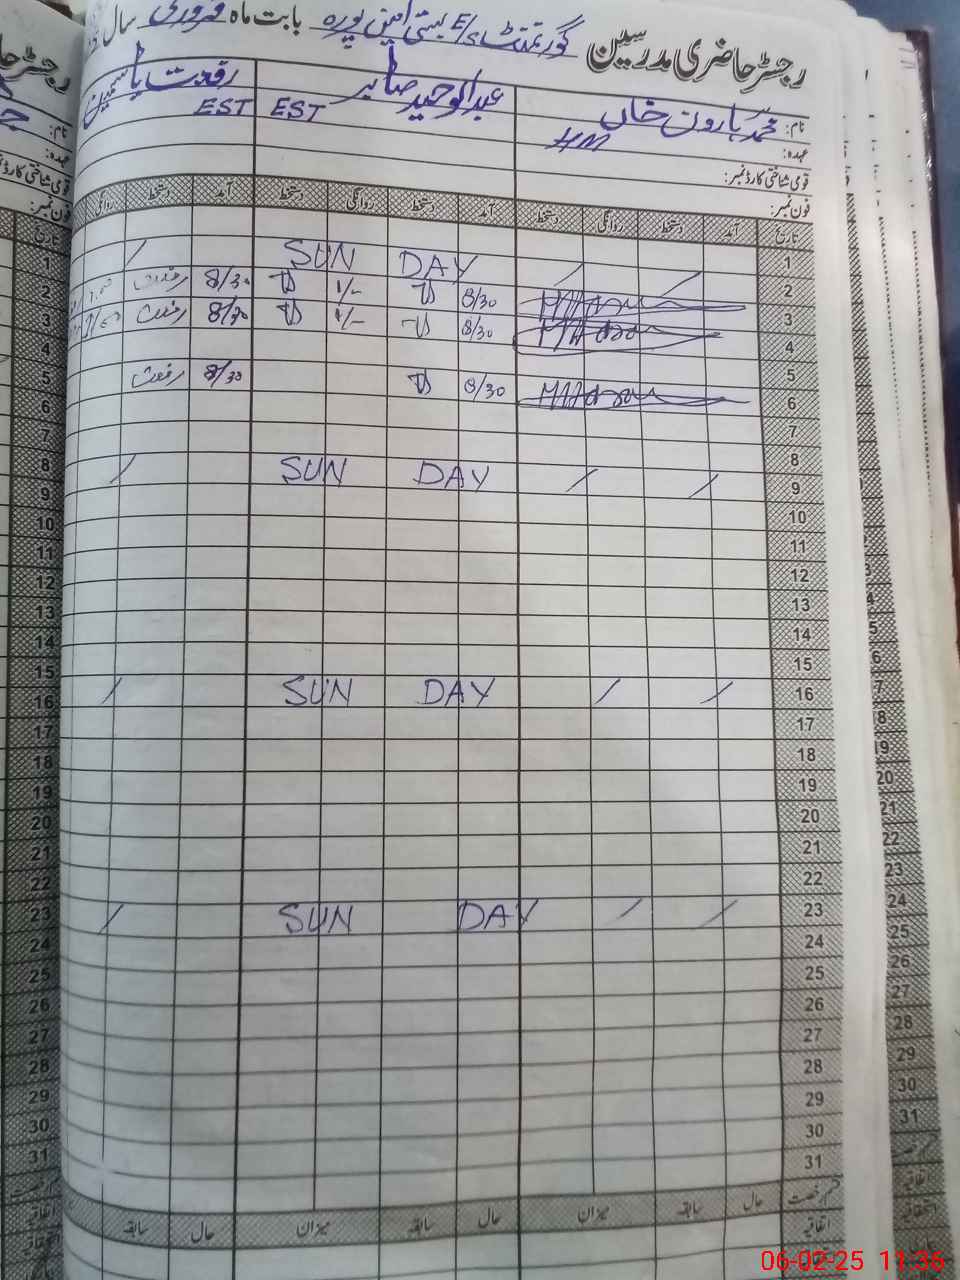 رجسٹر حاضری مدرسین گورنمنٹ E/S بستی امین پورہ بابت ماہ فروری سال
نام: محمد ہارون خان عبدالوحید صابر رفعت یاسمین
عہدہ: HM EST EST
قومی شناختی کارڈ نمبر:
فون نمبر:
تاریخ آمد دستخط روانگی دستخط آمد دستخط روانگی دستخط آمد دستخط روانگی
1
2 SUN DAY
3 8/30 1/- 8/30 رفعت
4 8/30 1/- 8/30 رفعت
5
6 8/30 8/30 رفعت
7
8
9 SUN DAY
10
11
12
13
14
15
16 SUN DAY
17
18
19
20
21
22
23 SUN DAY
24
25
26
27
28
29
30
31
قسم رخصت حال سابقہ میزان حال سابقہ میزان حال سابقہ
اتفاقیہ
06-02-25 11:36